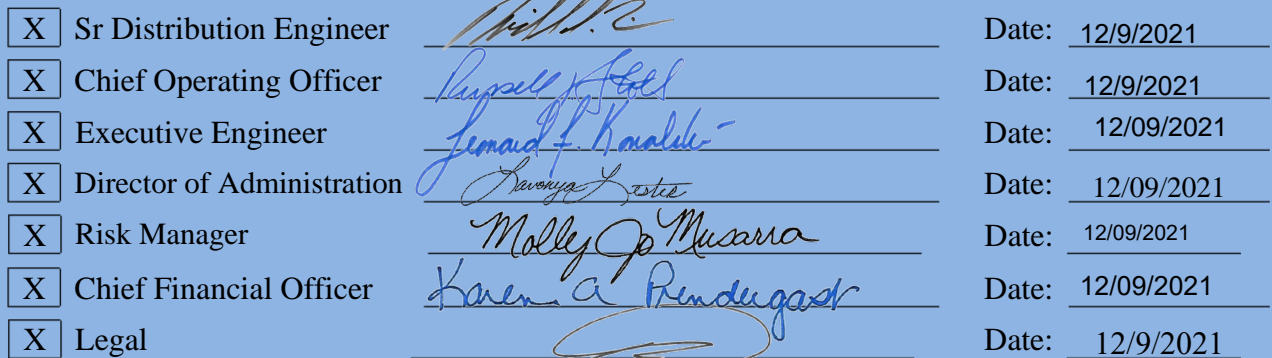 X Sr Distribution Engineer Date: 12/9/2021
X Chief Operating Officer Russell J Stoll Date: 12/9/2021
X Executive Engineer Leonard F. Date: 12/09/2021
X Director of Administration Lavonya Lester Date: 12/09/2021
X Risk Manager Molly Jo Musarra Date: 12/09/2021
X Chief Financial Officer Karen A Prendergast Date: 12/09/2021
X Legal Date: 12/9/2021